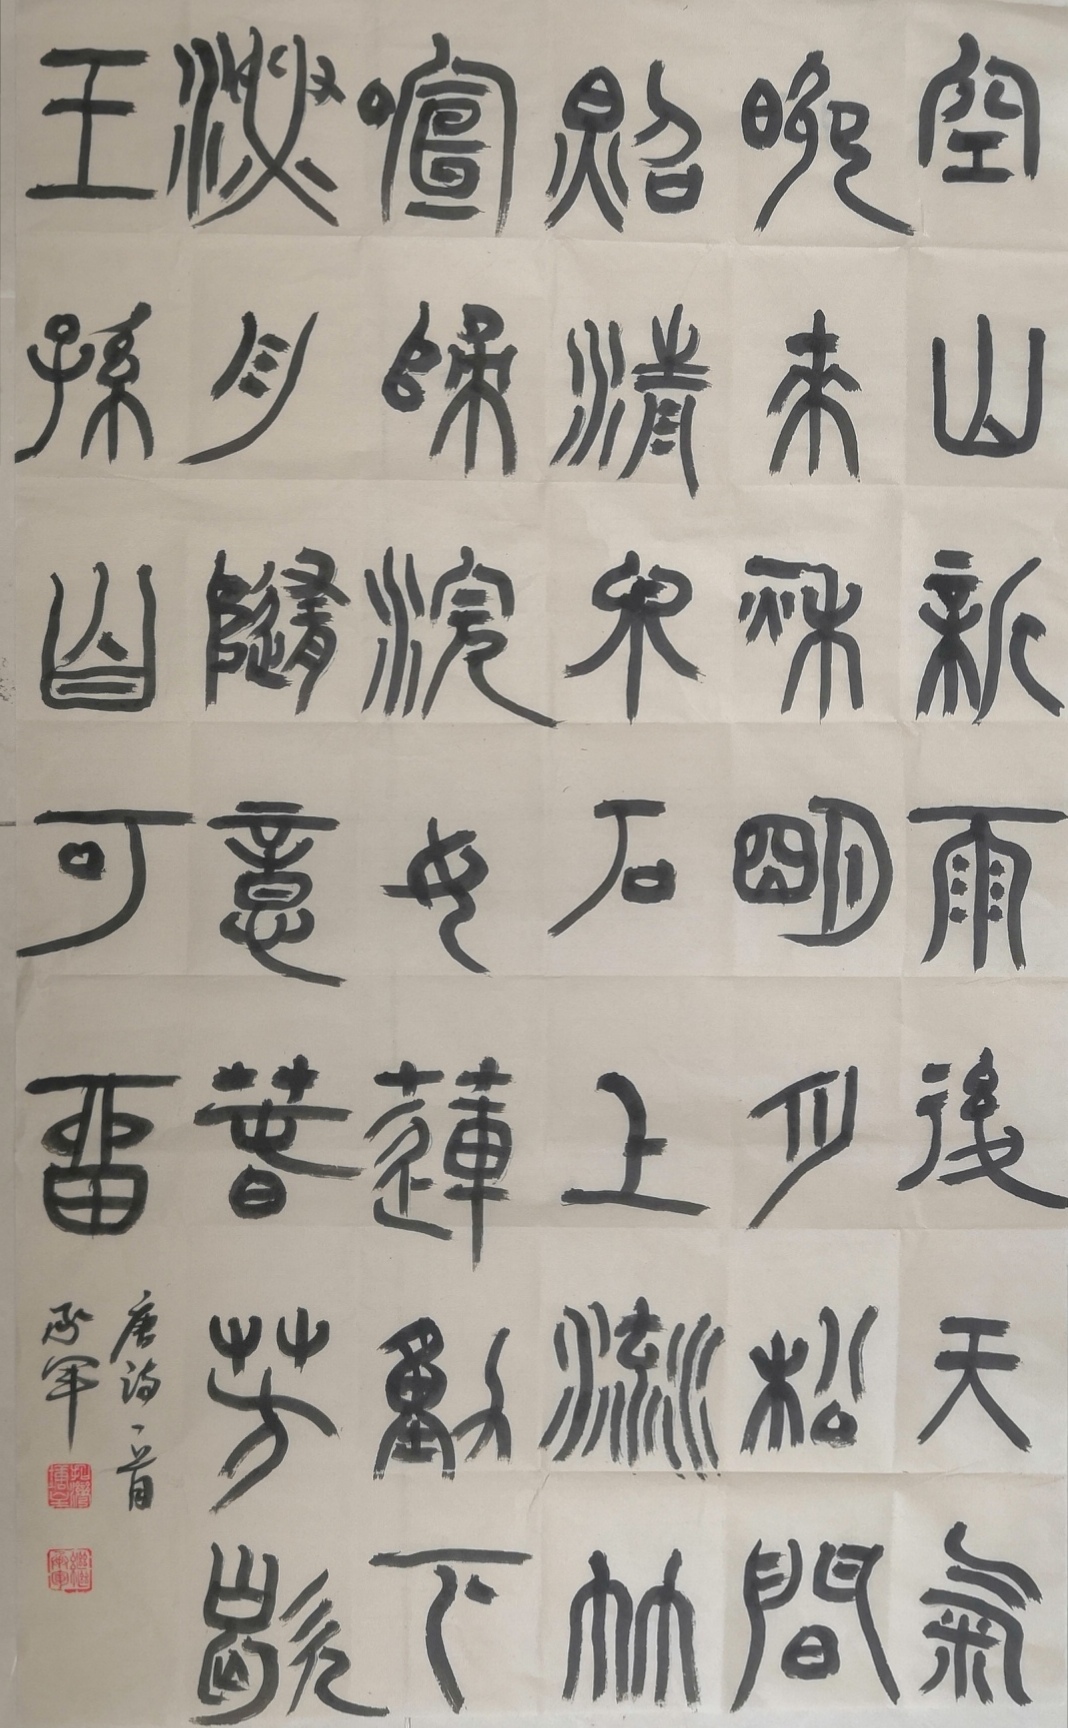 空山新雨後天氣
晚來秋明月松間
照清泉石上流竹
喧歸浣女蓮動下
漁舟隨意春芳歇
王孫自可留
唐诗一首
承军